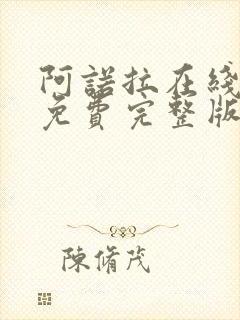 阿諾拉在綫
免費完整版
陳脩茂